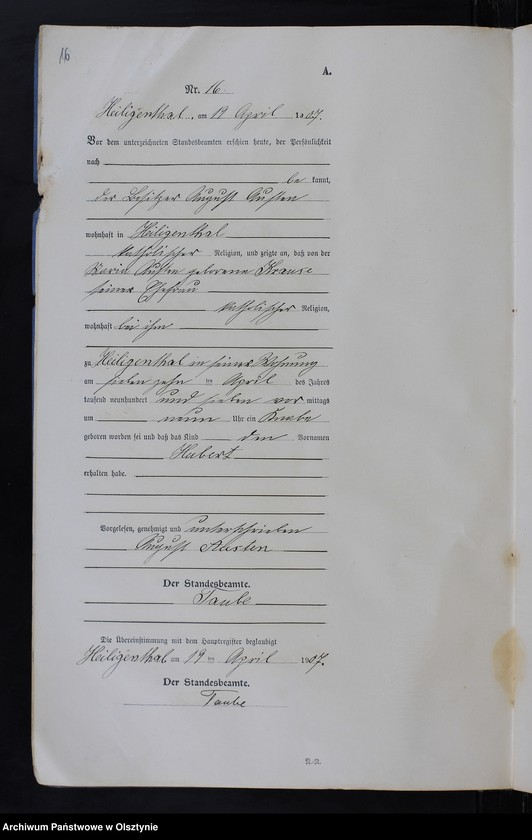 16
A.
Nr. 16.
Heiligenthal, am 19 April 1907.
Vor dem unterzeichneten Standesbeamten erschien heute, der Persönlichkeit
nach
be kannt,
der Besitzer August Austen
wohnhaft in Heiligenthal
katholischer Religion, und zeigte an, daß von der
Maria Austen geborene Krause
seiner Ehefrau
katholischer Religion,
wohnhaft bei ihm
zu Heiligenthal in seiner Wohnung
am siebenzehn ten April des Jahres
tausend neunhundert und sieben vor mittags
um neun Uhr ein Knabe
geboren worden sei und daß das Kind den Vornamen
Hubert
erhalten habe.
Vorgelesen, genehmigt und unterschrieben
August Austen
Der Standesbeamte.
Taube
Die Übereinstimmung mit dem Hauptregister beglaubigt
Heiligenthal am 19 ten April 1907.
Der Standesbeamte.
Taube
Archiwum Państwowe w Olsztynie